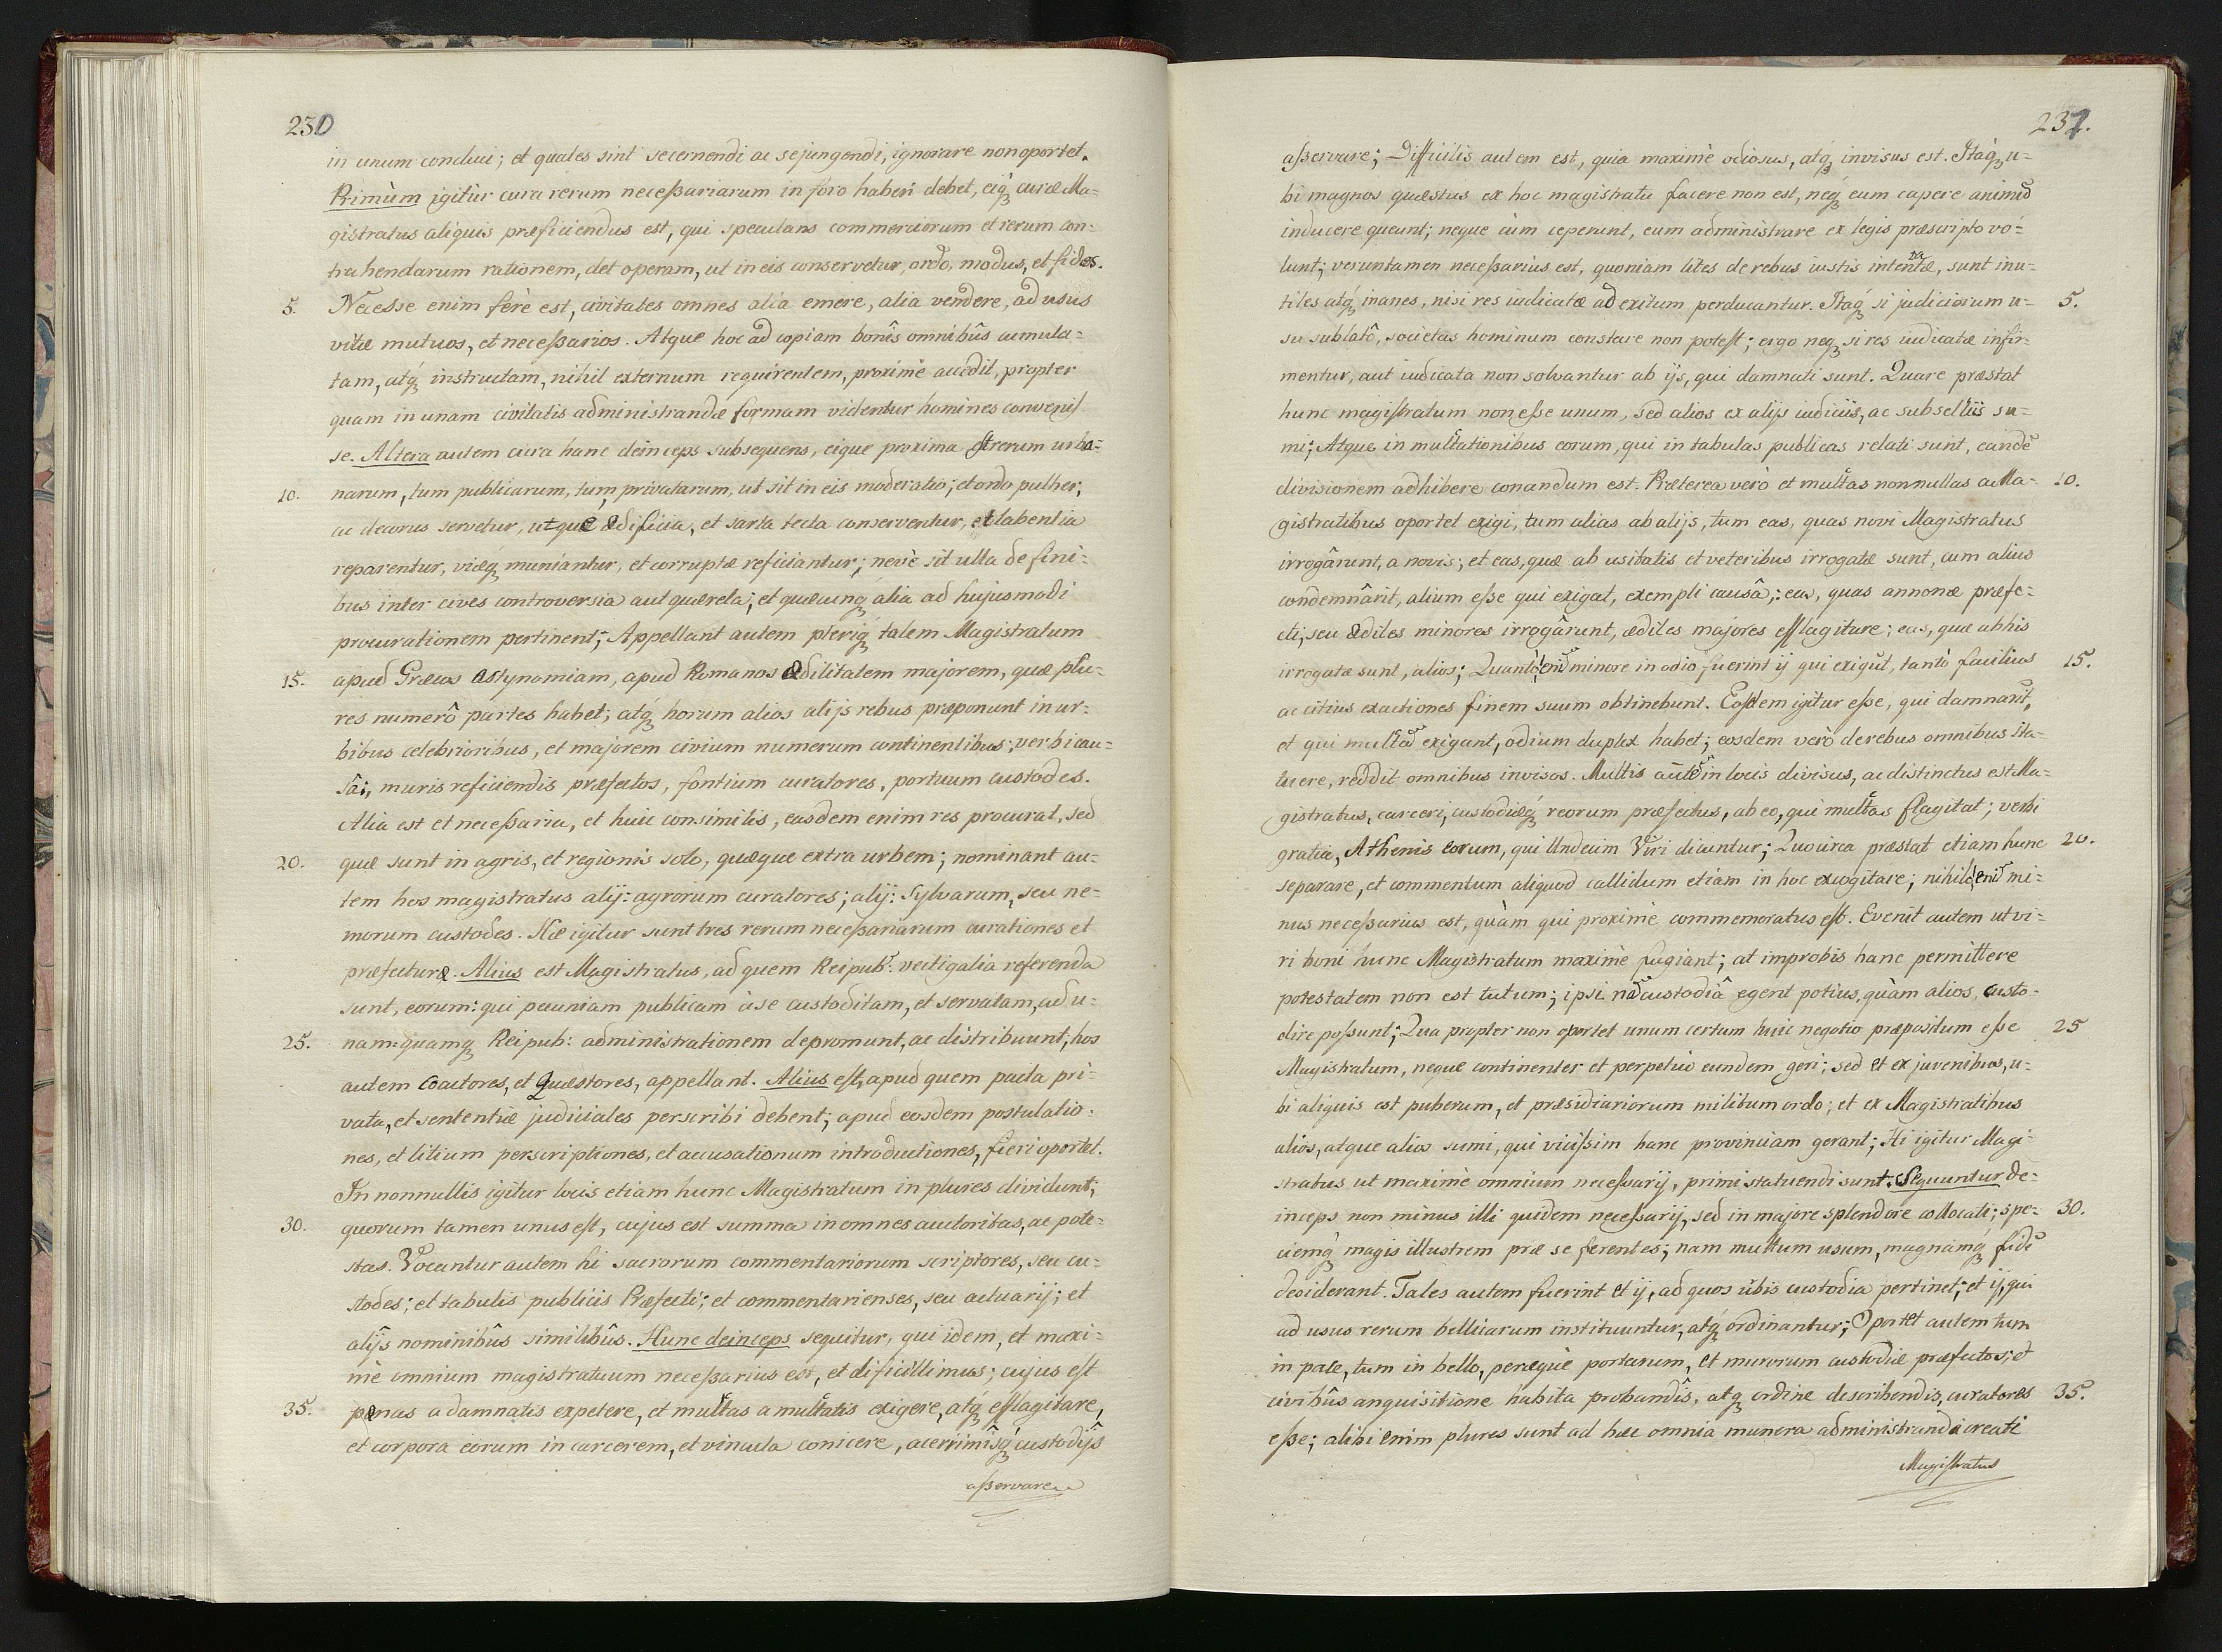 230
in unum conduci; et quales sint secernendi ac sejungendi, ignorare non oportet.
Primùm igitùr cura rerum neceßariarum in foro haberi debet, eiq́ʒ curæ Ma=
gistratus aliquis præficiendus est, qui speculans commerciorum et rerum con=
trahendarum rationem, det operam, ut in eis conservetur, ordo, modus, et fides.
5. Necesse enim ferè est, civitates omnes alia emere, alia vendere, ad usus
vitæ mutuos, et neceßarios. Atque hoc ad copiam bonîs omnibûs cumula=
tam, atq́ʒ instructam, nihil externum requirentem, proximè accedit, propter
quam in unam civitatis administrandæ formam videntur homines convenis
se. Altera autem cura hanc deinceps subsequens, eique proxima est rerum urba=
10. narum, tum publicarum, tum privatarum, ut sit in eis moderatio; et ordo pulher,
ac decorus servetur, utque ædificia, et sarta tecta conserventur, et labentia
reparentur, viæqʒ muniantur, et corruptæ reficiantur; nevè sit ulla de fini=
bus inter cives controversia aut quærela; et quæcunq́ʒ alia ad hujusmodi
procurationem pertinent; Appellant autem pleriq́ʒ talem Magistratum
15. apud Græcos Astynomiam, apud Romanos Ædilitatem majorem, quæ plu=
res numerô partes habet; atq́ʒ horum alios alijs rebus præponunt in ur=
bibus celebrioribus, et majorem civium numerum continentibus; verbi cau=
sâ:, muris reficiendis præfectos, fontium curatores, portuum custodes.
Alia est et neceßaria, et huic consimilis, easdem enim res procurat, sed
20. quæ sunt in agris, et regionis solo, quæque extra urbem; nominant au=
tem hos magistratus alij: agrorum curatores; alij: Sylvarum, seu ne=
morum custodes. Hæ igitur sunt tres rerum neceßariarum curationes et
præfecturæ. Alius est Magistratus, ad quem Reipub: vectigalia referenda
sunt, eorum: qui pecuniam publicam à se custoditam, et servatam, ad u=
25. nam=quamqʒ Reipub: administrationem depromunt, ac distribuunt; hos
autem Coactores, et Quæstores, appellant. Alius est, apud quem pacta pri=
vata, et sententiæ judiciales perscribi debent; apud eosdem postulatio=
nes, et litium perscriptiones, et accusationum introductiones, fieri oportet.
In nonnullis igitur locis etiam hunc Magistratum in plures dividunt;
30. quorum tamen unus est, cujus est summa in omnes auctoritas, ac pote=
stas. Vocantur autem hi sacrorum commentariorum scriptores, seu cu=
stodes; et tabulis publicis Præfecti; et commentarienses, seu actuarij; et
alijs nominibûs similibûs. Hunc deinceps sequitur, qui idem, et maxi=
mè omnium magistratuum neceßarius est, et dificillimus; cujus est
35. pænas a damnatis expetere, et multas a multatis exigere, atq́ʒ efflagitare,
et corpora eorum in carcerem, et vincula conicere, acerrimîsq́ʒ custodijs
aßervare
231.
aßervare; Difficilis autem est, quia maximè odiosus, atqʒ invisus est. Itáqʒ u=
bi magnos quæstus ex hoc magistratu facere non est, neqʒ eum capere animũ
inducere queunt; neque cùm ceperunt, eum administrare ex legis præscripto vó=
lunt; veruntamen necessarius est, quoniam lites de rebus iustis intentæ, sunt inu=
tiles atq́ʒ inanes, nisi res iudicatæ ad exitum perducantur. Itaq́ʒ si judiciorum u= 5.
su sublatô, societas hominum constare non potest; ergo neqʒ si res iudicatæ infir=
mentur, aut iudicata non solvantur ab ijs, qui damnati sunt. Quare præstat
hunc magistratum non esse unum, sed alios ex alijs iudiciis, ac subselliis su=
mi; Atque in multationibus eorum, qui in tabulas publicas relati sunt, eandẽ
divisionem adhibere conandum est. Præterea verò et multas nonnullas a Ma= 10.
gistratibus oportet exigi, tum alias ab alijs, tum eas, quas novi Magistratus
irrogârunt, a novis; et eas, quæ ab usitatis et veteribus irrogatæ sunt, cum alius
condemnârit, alium esse qui exigat, exempli causâ;: eas, quas annonæ præfe=
cti, seu ædiles minores irrogârunt, ædiles majores efflagitare; eas, quæ ab his
irrogatæ sunt, alios; Quantò enĩ minore in odio fuerint ij qui exigũt, tantò facilius 15.
ac citius exactiones finem suum obtinebunt. Eosdem igitur esse, qui damnarũt,
et qui multas exigant, odium duplex habet; eosdem verò de rebus omnibus sta=
tuere, reddit omnibus invisos. Multis autẽ in locis divisus, ac distinctus est Ma=
gistratus, carceri, custodiæq́ʒ reorum præfectus, ab eo, qui multas flagitat; verbi
gratia, Athenis eorum, qui Undecim Viri dicuntur; Quocirca præstat etiam hunc 20.
separare, et commentum aliquod callidum etiam in hoc excogitare; nihilo enĩ mi=
nus necessarius est, quàm qui proximè commemoratus est. Evenit autem ut vi=
ri boni hunc Magistratum maximè fugiant; at improbis hanc permittere
potestatem non est tutum; ipsi nã custodiâ egent potius, quàm alios, custo=
dire possunt; Qua propter non oportet unum certum huic negotio præpositum esse 25
Magistratum, neque continenter et perpetuò eundem geri; sed et ex juvenibus, u=
bi aliquis est puberum, et præsidiariorum militum ordo; et ex Magistratibus
alios, atque alios sumi, qui vicißim hanc provinciam gerant; Hi igitur Magi=
stratus ut maximè omnium necessarij, primi statuendi sunt. Sequuntur de=
inceps non minus illi quidem necessarij, sed in majore splendore collocati; spe= 30.
ciemq́ʒ magis illustrem præ se ferentes; nam multum usum, magnamq́ʒ fidẽ
desiderant. Tales autem fuerint et ij, ad quos urbis custodia pertinet; et ij, qui
ad usus rerum bellicarum instituuntur, atqʒ ordinantur; Oportet autem tum
in pace, tum in bello, peræquè portarum, et murorum custodiæ præfectos; et
civibûs anquisitione habita probandîs, atqʒ ordine describendis, curatores 35.
eße; alibi enim plures sunt ad hæc omnia munera administranda creati
Magistratus